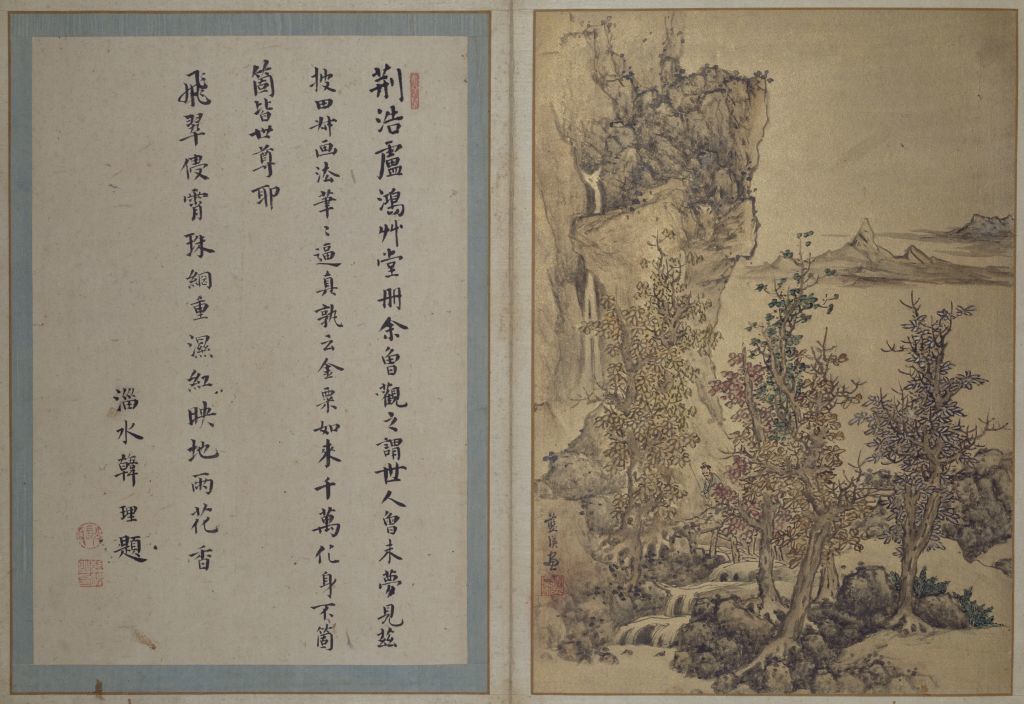 荆浩盧鴻艸堂冊余曽觀之謂世人曽未夢見兹
披田叔画法筆〻逼真孰云金粟如來千萬化身不箇
箇皆世尊耶
飛翠侵霄珠網重濕紅映地雨花香
淄水韓理題
藍瑛畫